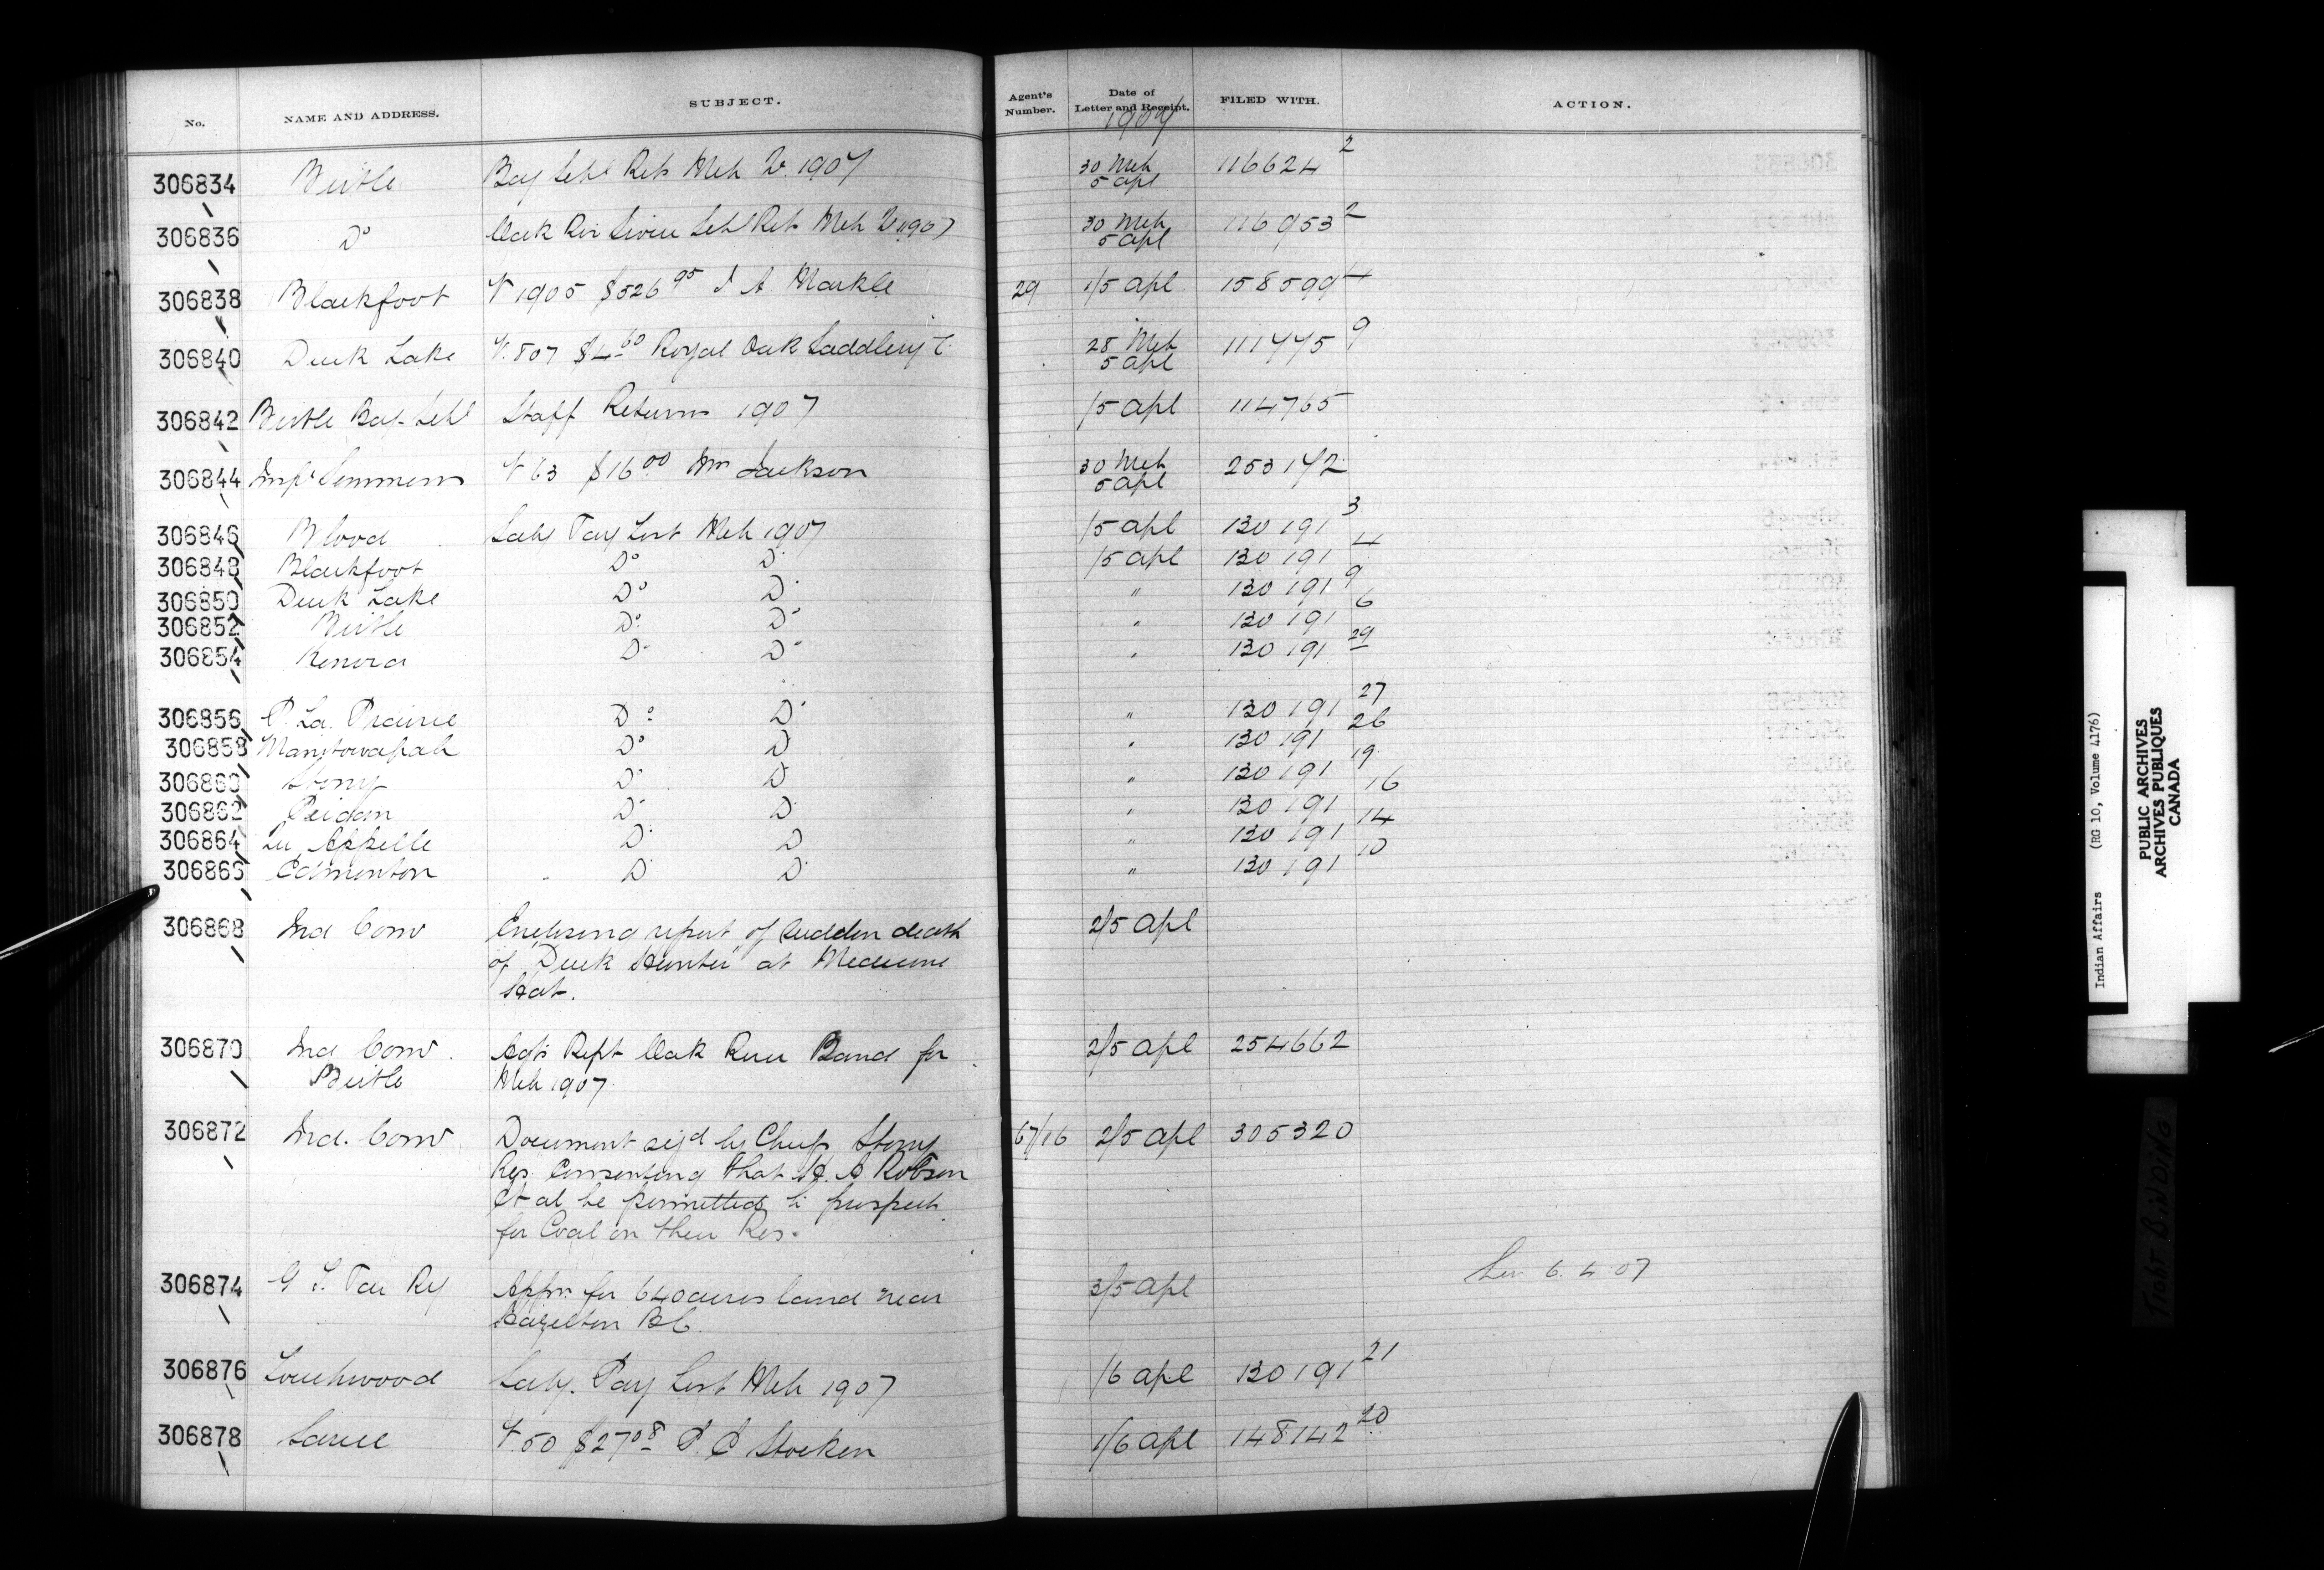 No. NAME AND ADDRESS. SUBJECT. Agent's Number. Date of Letter and Receipt. FILED WITH. ACTION.
1907
306834 Birtle Bdg Schl Ret Mch 1907 30 Mch 5 apl 116624 2
306836 Do Oak Riv Sioux Schl Ret Mch 1907 30 Mch 5 apl 116953 2
306838 Blackfoot V 1905 $526 95 J A Markle 29 1/5 apl 158599 4
306840 Duck Lake V. 807 $4 60 Royal Oak Saddlery C. 28 Mch 5 apl 111775 9
306842 Birtle Bdg. Schl Staff Returns 1907 /5 apl 114765
306844 Insp Semmens V 63 $16 00 Wm Jackson 30 Mch 5 apl 253172
306846 Blood Saly Pay List Mch 1907 /5 apl 130191 3
306848 Blackfoot Do Do /5 apl 130191 4
306850 Duck Lake Do Do " 130191 9
306852 Birtle Do Do " 130191 6
306854 Kenora Do Do " 130191 29
306856 P. La. Prairie Do Do " 130191 27
306858 Manitowapah Do Do " 130191 26
306860 Stony Do Do " 130191 19
306862 Peigan Do Do " 130191 16
306864 Qu Appelle Do Do " 130191 14
306866 Edmonton Do Do " 130191 10
306868 Ind Com Enclosing report of sudden death 2/5 apl
of "Duck Hunter" at Medicine
Hat.
306870 Ind Com. Agts Rept Oak River Band for 2/5 apl 254662
Birtle Mch 1907
306872 Ind. Com Document sigd by Chiefs Stony 67/16 2/5 apl 305320
Res. Consenting that H. A Robson
et al be permitted to prospect
for Coal on their Res.
306874 G T. Pac Ry Appn for 640 acres land near 3/5 apl 6. 4 07
Hazelton BC.
306876 Touchwood Saly. Pay List Mch 1907 /6 apl 130191 21
306878 Sarcee V. 50 $27 08 Stocken 1/6 apl 148142 20
Indian Affairs (RG 10, Volume 4176)
PUBLIC ARCHIVES
ARCHIVES PUBLIQUES
CANADA
TIGHT BINDING